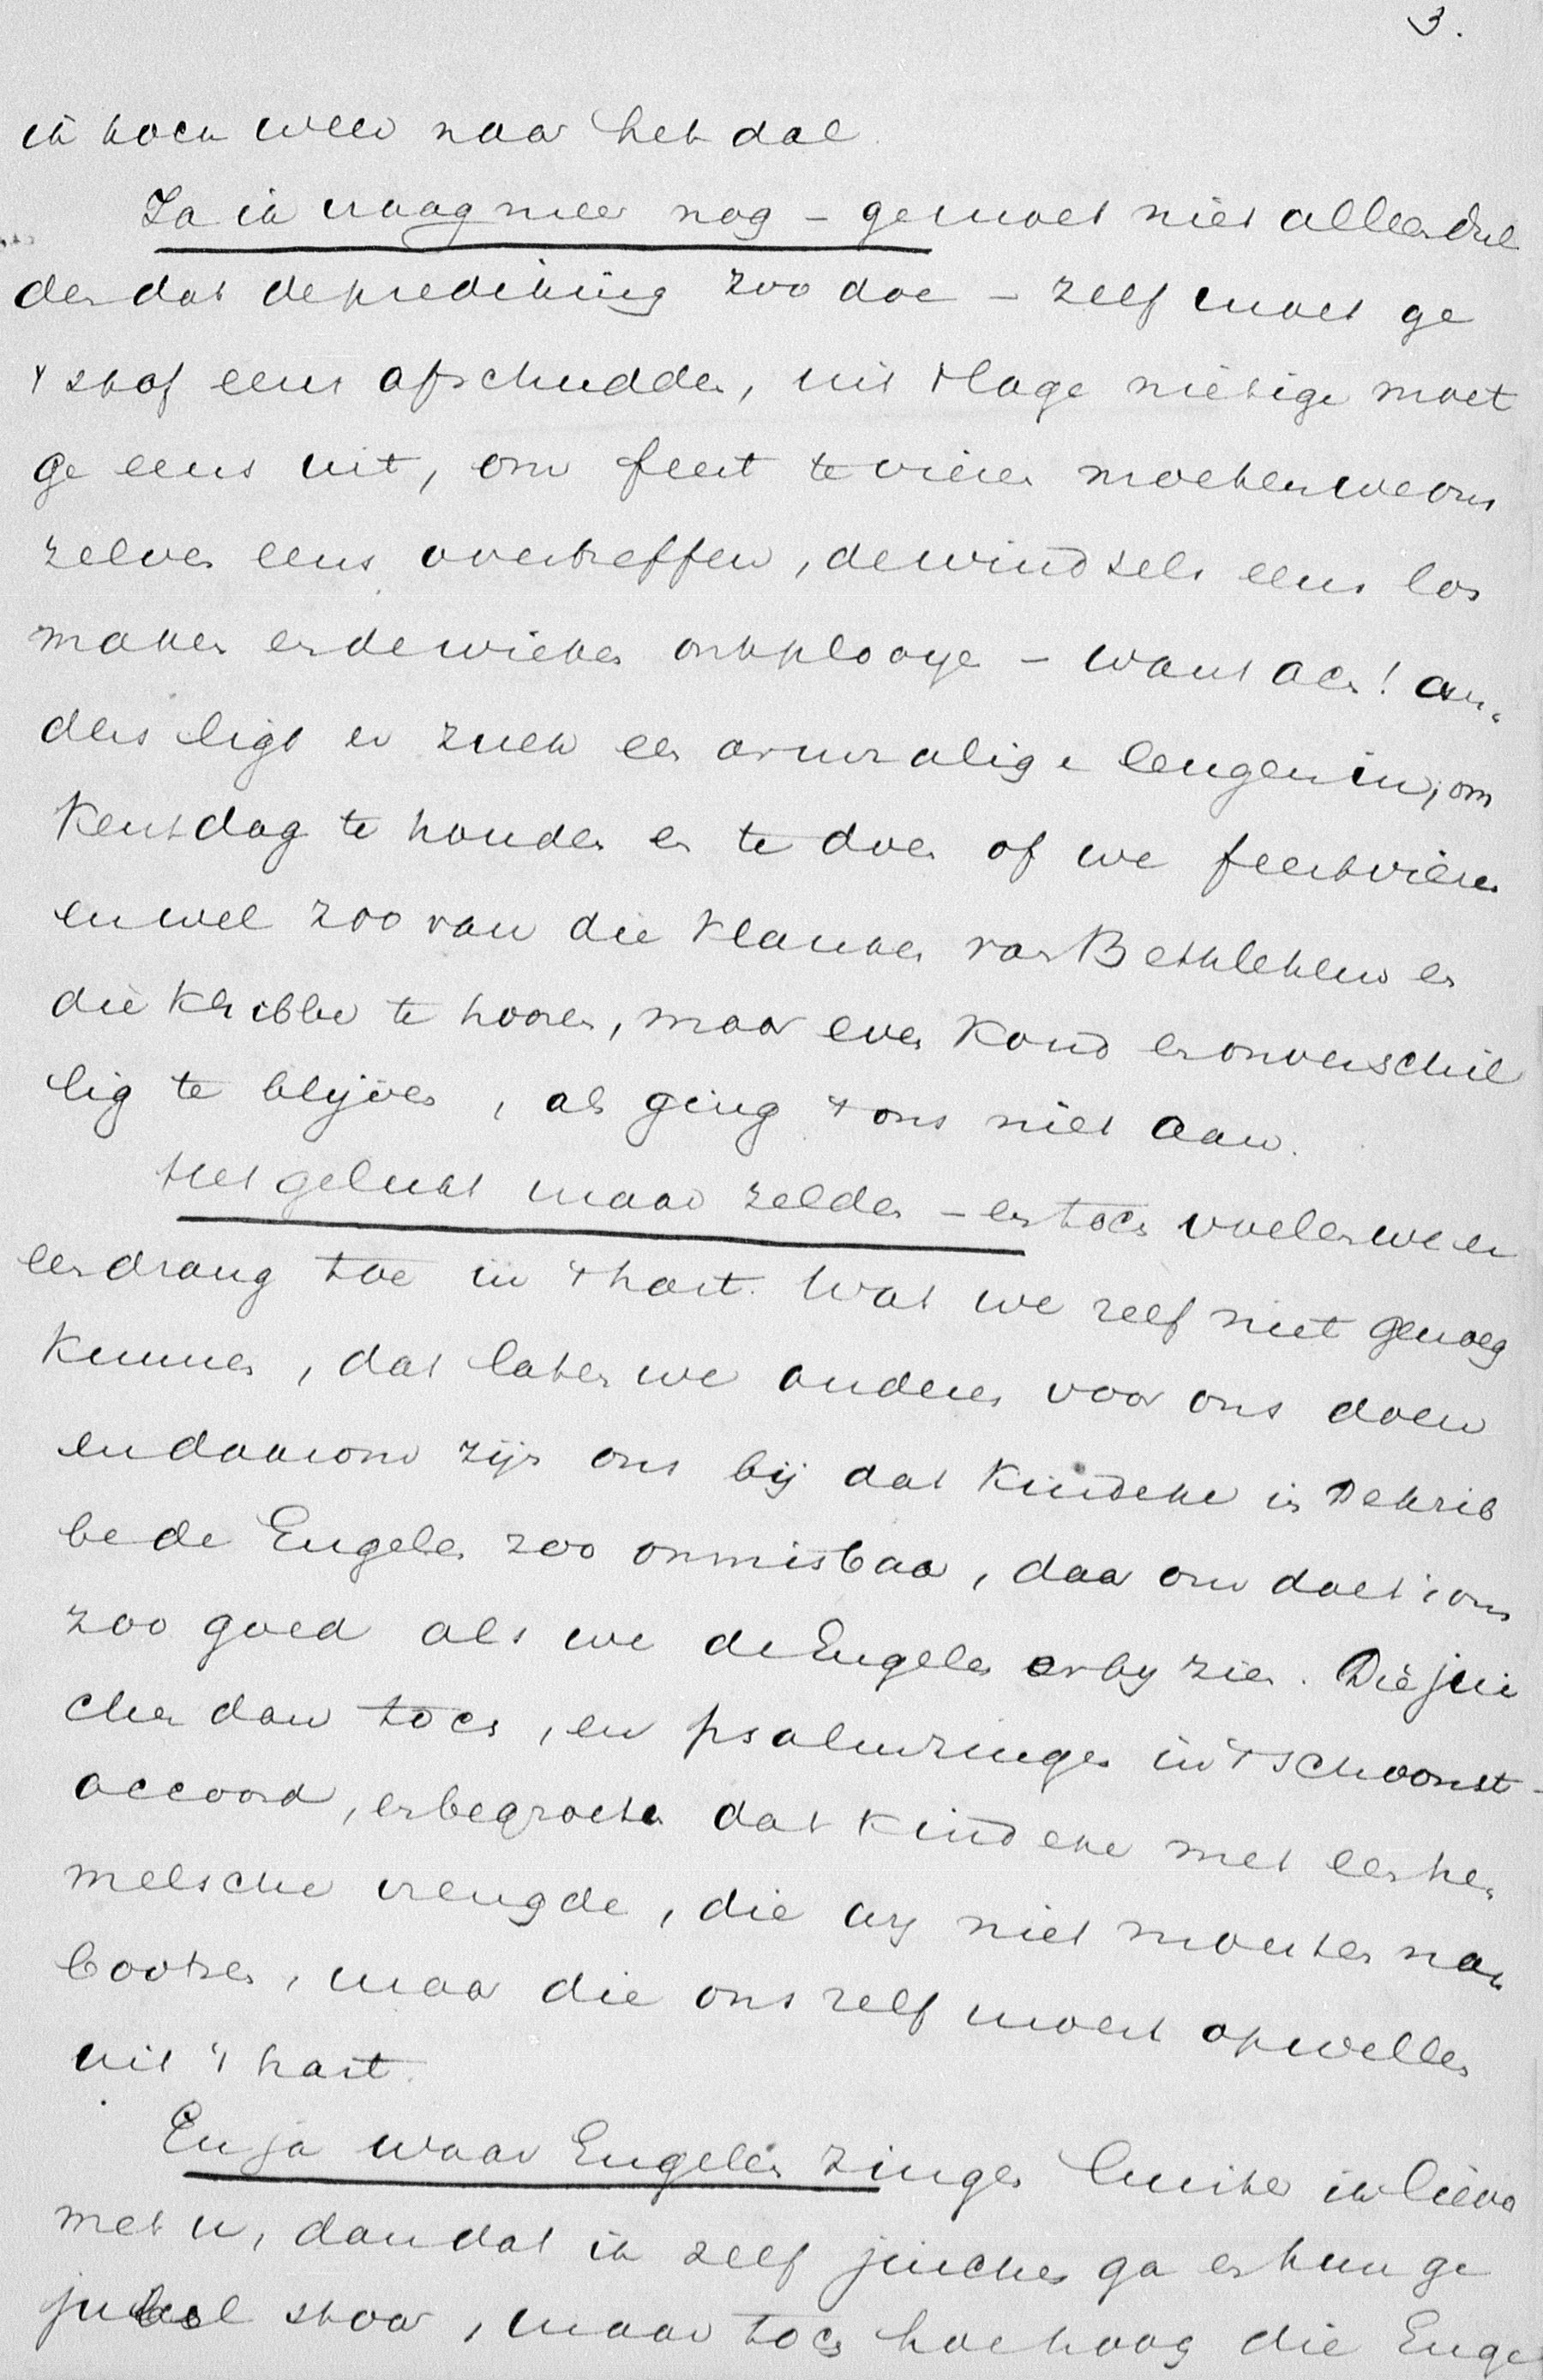 3.
ik toch weer naar het dal
Ja ik vraag meer nog - ge moet niet alleen dul
den dat de prediking zoo doe - zelf moet ge
't stof eens afschudden, uit 't lage nietige moet
ge eens uit, om feest te vieren moeten we ons
zelven eens overtreffen, de windsels eens los
maken en de wieken ontplooye - want ach! an-
ders ligt er zulk een armzalige leugen in, om
Kerstdag te houden en te doen of we feestvieren
en wel zoo van die klanken van Bethlehem en
die kribbe te hooren, maar even koud en onverschil
lig te blijven, als ging 't ons niet aan.
Het gelukt maar zelden - en toch voelen we er
een drang toe in 't hart. Wat we zelf niet genoeg
kunnen, dat laten we anderen voor ons doen
en daarom zijn ons bij dat Kindeke in de krib
be de Engelen zoo onmisbaar, daarom doet 't ons
zoo goed als we de Engelen erby zien. Die jui
chen dan toch, en psalmzingen in 't schoonst-
accoord, en begroeten dat kindeke met een he
melsche vreugde, die wy niet moesten na
bootsen, maar die ons zelf moest opwellen
uit 't hart.
En ja waar Engelen zingen luister ik liever
met u, dan dat ik zelf juichen ga en hun ge
jubel stoor, maar toch hoe hoog die Enge